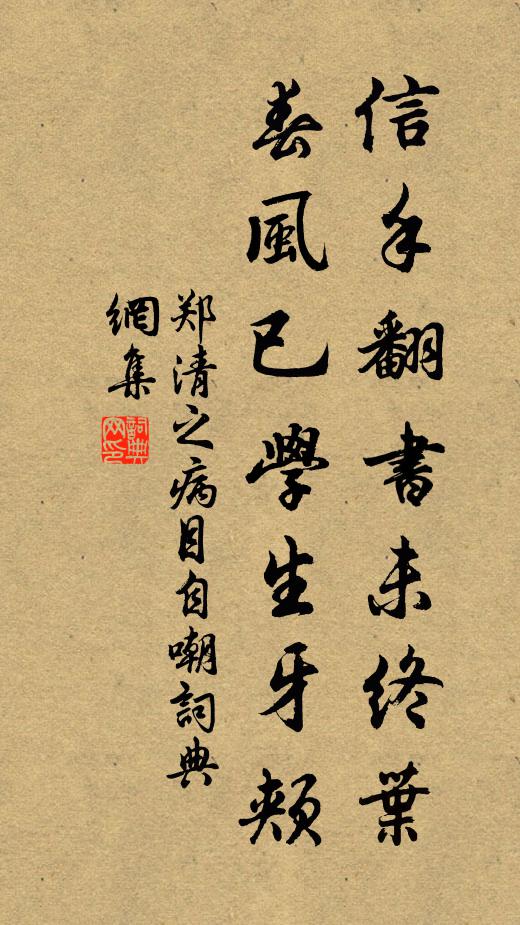 信手翻書未終葉
春風已學生牙頰
郑清之病目自嘲詞典
網集
詞典網印